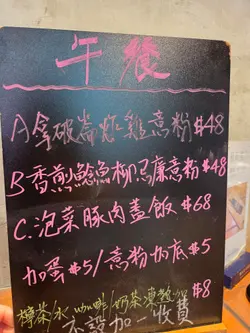 午餐
A拿破崙炆雞意粉$48
B香煎鯰魚柳忌廉意粉$48
C.泡菜豚肉蓋飯$68
加蛋$5/意粉加底$5
檸茶/水 咖啡/奶茶 凍熱 $8
不設加一收費